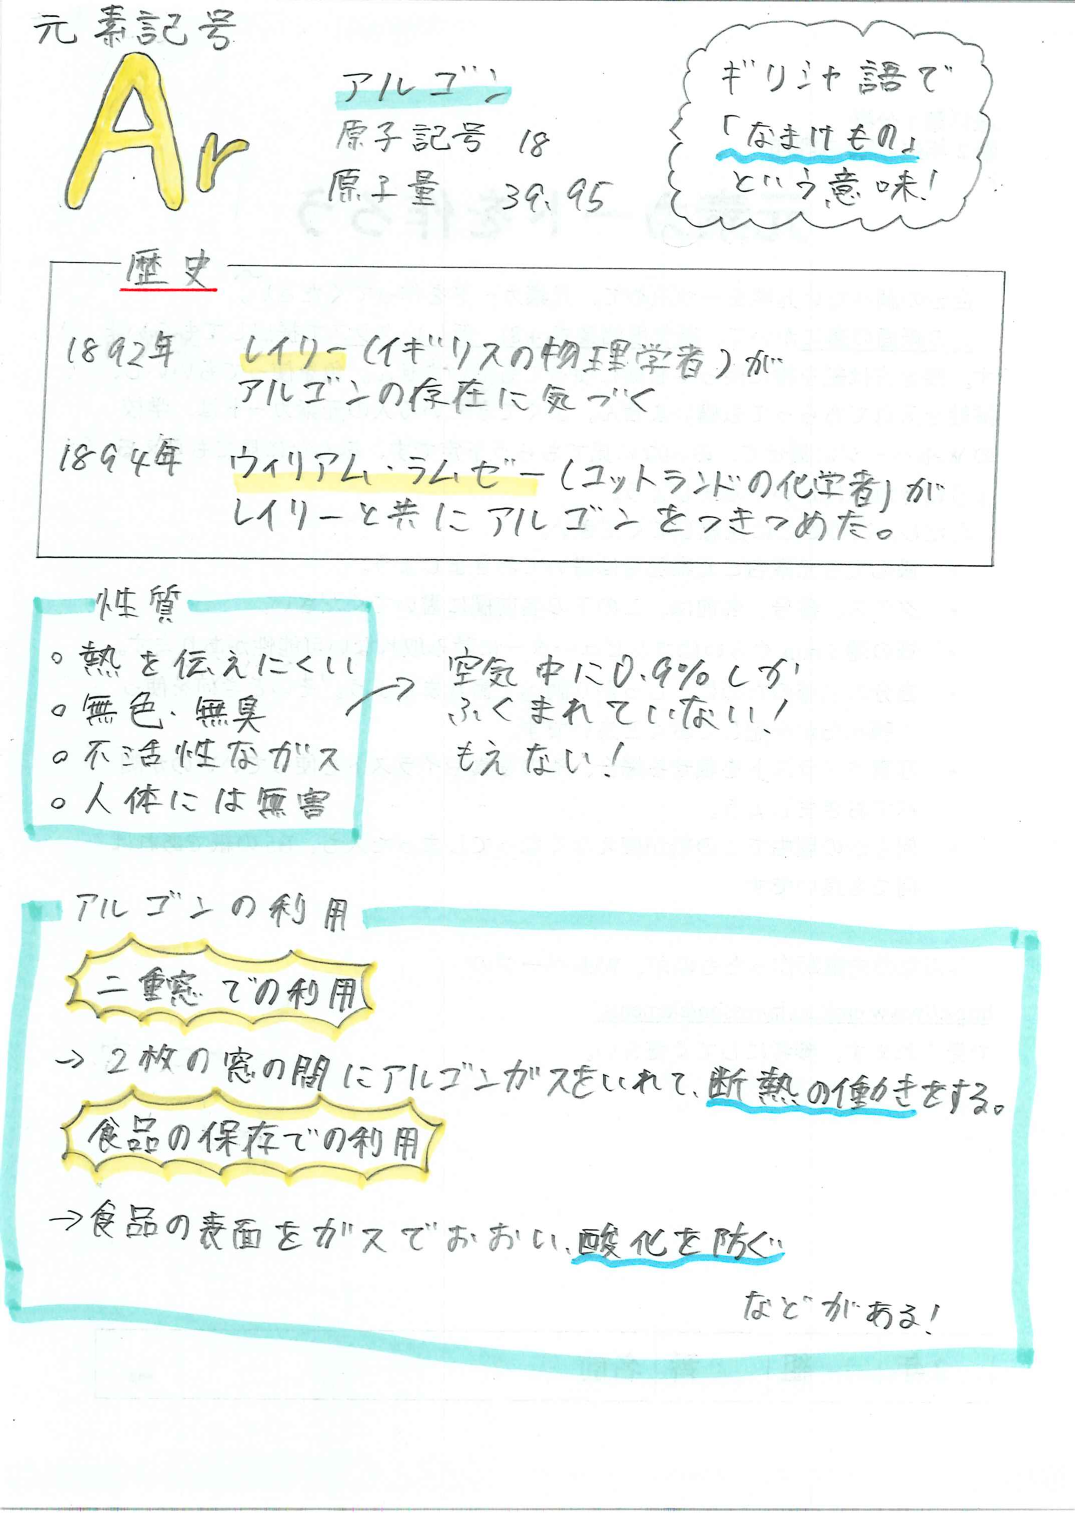 元素記号
Ar
アルゴン
原子記号 18
原子量 39.95
ギリシャ語で
「なまけもの」
という意味!
歴史
1892年 レイリー(イギリスの物理学者)が
アルゴンの存在に気づく
1894年 ウィリアム・ラムゼー(コットランドの化学者)が
レイリーと共にアルゴンをつきつめた。
性質
○熱を伝えにくい
○無色・無臭
○不活性なガス
○人体には無害
→ 空気中に0.9%しか
ふくまれていない!
もえない!
アルゴンの利用
二重窓での利用
→2枚の窓の間にアルゴンガスをいれて、断熱の働きをする。
食品の保存での利用
→食品の表面をガスでおおい、酸化を防ぐ
などがある!